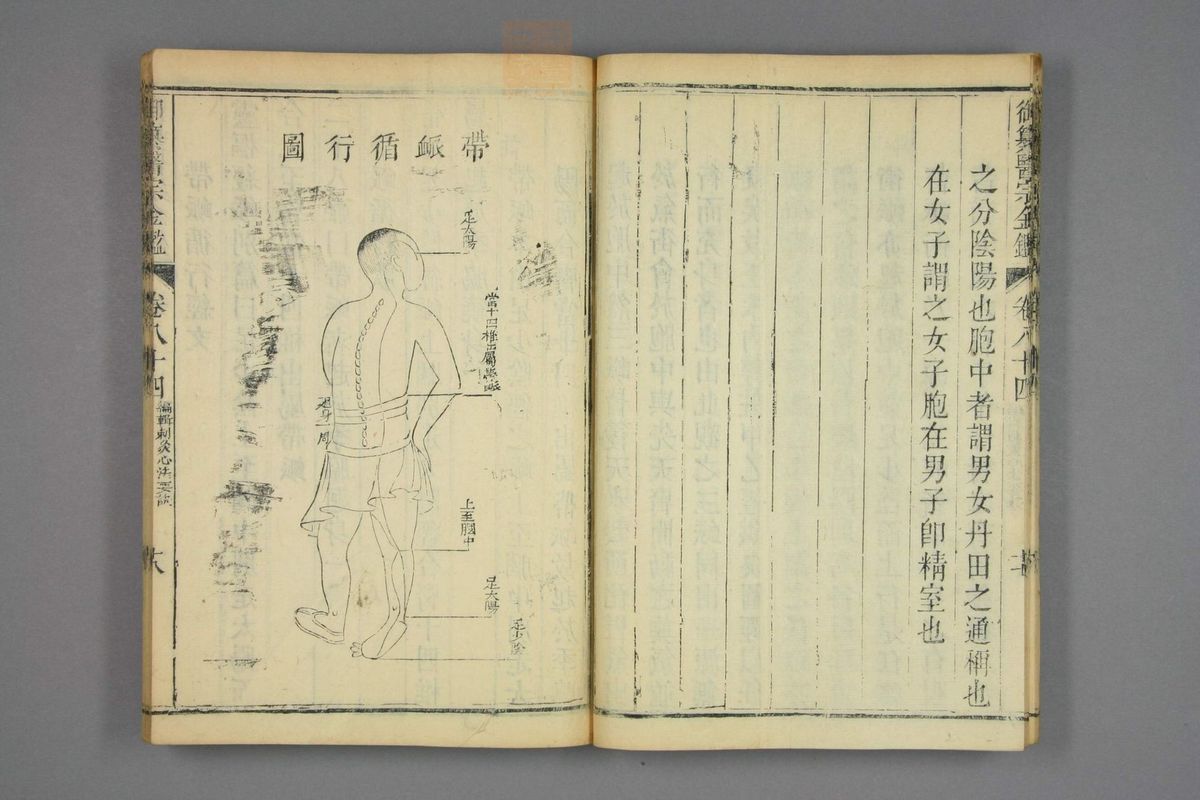 御纂醫宗金鑑
卷八十四
之分陰陽也胞中者謂男女丹田之通稱也
在女子謂之女子胞在男子卽精室也
帶䘑循行圖
足太陽
當十四椎出屬帶䘑
迴身一周
上至膕中
足太陽
足少陰
御纂醫宗金鑑
卷八十四
編輯刺灸心法要訣
六